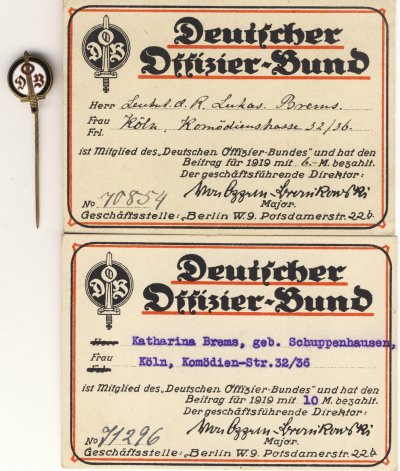 D O B
D O B
Deutscher
Offizier-Bund
Herr Leutnt. d. R. Lukas Brems.
Frau Köln. Komödienstrasse 32/36.
Frl.
ist Mitglied des „Deutschen Offizier-Bundes" und hat den
Beitrag für 1919 mit 6.-M. bezahlt.
Der geschäftsführende Direktor:
Major.
No 70854
Geschäftsstelle: Berlin W.9. Potsdamerstr. 22b.
D O B
Deutscher
Offizier-Bund
Herr Katharina Brems, geb. Schuppenhausen,
Frau Köln, Komödien-Str.32/36
Frl.
ist Mitglied des „Deutschen Offizier-Bundes" und hat den
Beitrag für 1919 mit 10 M. bezahlt.
Der geschäftsführende Direktor:
Major.
No 71296
Geschäftsstelle: Berlin W.9. Potsdamerstr. 22b.